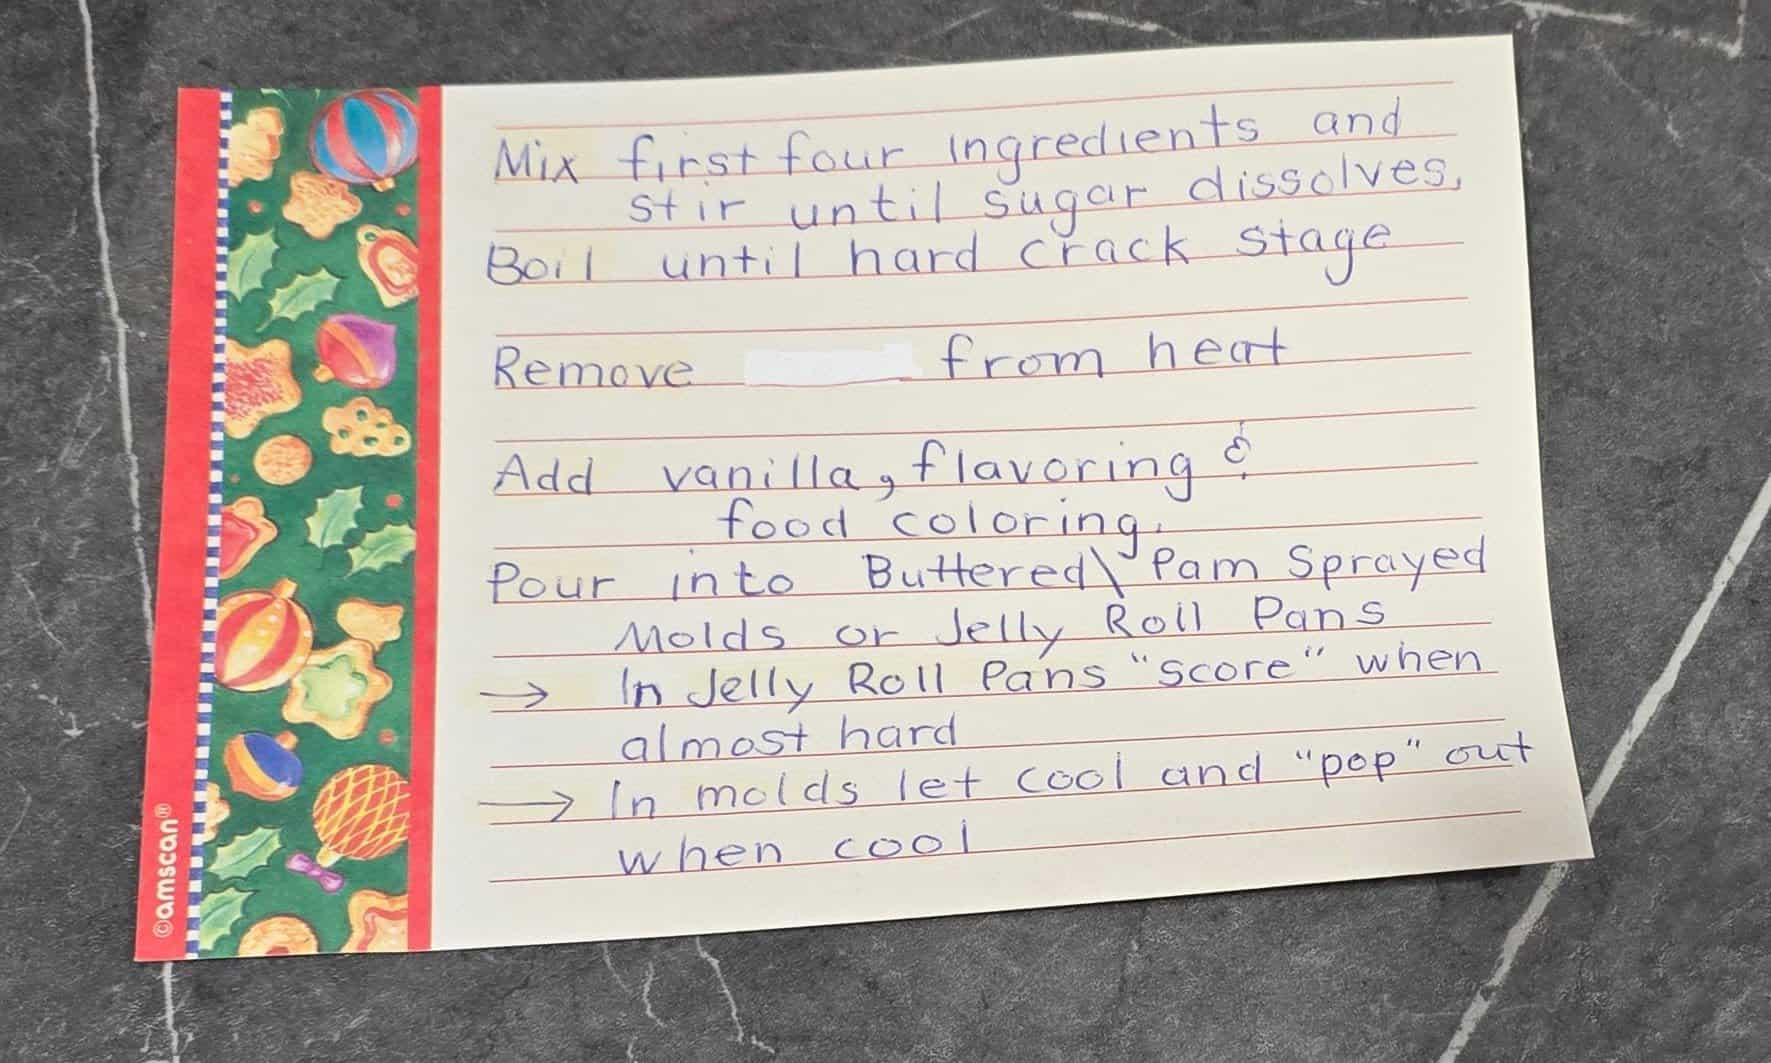 Mix first four ingredients and
stir until sugar dissolves.
Boil until hard crack stage
Remove from heat
Add vanilla, flavoring &
food coloring.
Pour into Buttered\ Pam Sprayed
Molds or Jelly Roll Pans
→ In Jelly Roll Pans "score" when
almost hard
→ In molds let cool and "pop" out
when cool
©amscan®